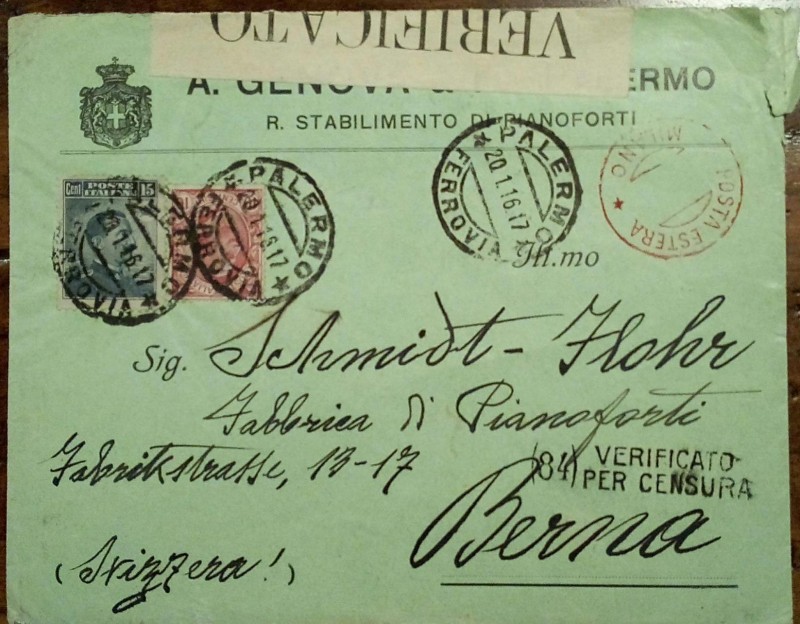 VERIFICATO
A. GENOVA & PALERMO
R. STABILIMENTO DI PIANOFORTI
Cent POSTE ITALIANE 15
PALERMO FERROVIA 20.1.16.17
PALERMO FERROVIA 20.1.16.17
PALERMO FERROVIA 20.1.16.17
POSTA ESTERA MILANO
Ill.mo
Sig. Schmidt-Flohr
Fabbrica di Pianoforti
Fabrikstrasse, 13-17
(84) VERIFICATO
PER CENSURA
Berna
(Svizzera!)